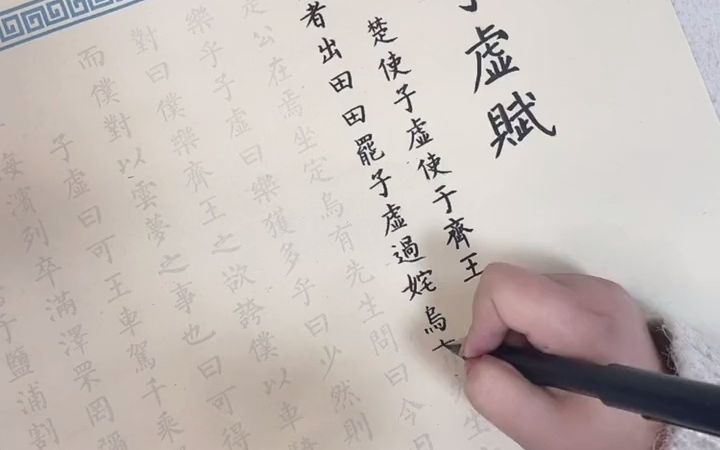 虛賦
楚使子虛使于齊王
者出田田罷子虛過姹烏
是公在焉坐定烏有先生問曰今日
樂乎子虛曰樂獲多乎曰少然則
對曰僕樂齊王之欲誇僕以車騎
而僕對以雲夢之事也曰可得
子虛曰可王車駕千乘
海濱列卒滿澤罘罔彌
于鹽浦割